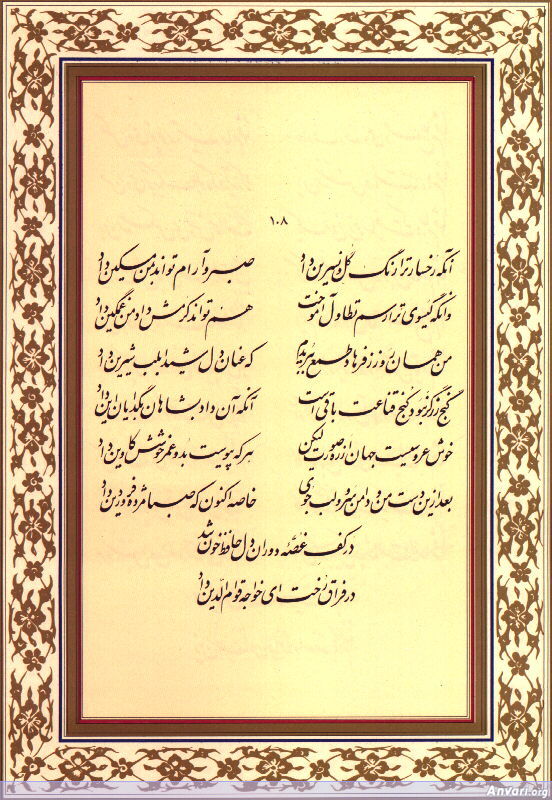 ۱۰۸
آنکه رخسار ترا رنگ گل و نسرین داد صبر و آرام تواند بمن مسکین داد
وانکه گیسوی ترا رسم تطاول آموخت هم تواند کرمش داد من غمگین داد
من همان روز ز فرهاد طمع ببریدم که عنان دل شیدا بلب شیرین داد
گنج زر گر نبود کنج قناعت باقی است آنکه آن داد بشاهان بگدایان این داد
خوش عروسیست جهان از ره صورت لیکن هر که پیوست بدو عمر خوشش کاوین داد
بعد ازین دست من و دامن سرو و لب جوی خاصه اکنون که صبا مژده فروردین داد
در کف غصّه دوران دل حافظ خون شد
در فراق رخت ای خواجه قوام الدین داد
Anvari.org